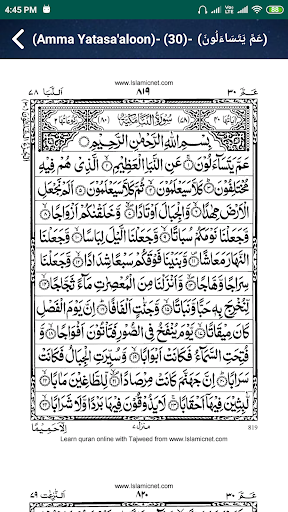 4:45 PM
(Amma Yatasa'aloon)- (30)- (عَمَّ يَتَسَاءَلُونَ)
www.Islamicnet.com
عَمّ ٣٠ ٨١٩ اَلنَّبَا ٧٨
سُوْرَةُ النَّبَاِ مَكِّيَّةٌ
بِسْمِ اللّٰهِ الرَّحْمٰنِ الرَّحِيْمِ
عَمَّ يَتَسَآءَلُوْنَ ۝١ عَنِ النَّبَاِ الْعَظِيْمِ ۝٢ الَّذِيْ هُمْ فِيْهِ
مُخْتَلِفُوْنَ ۝٣ كَلَّا سَيَعْلَمُوْنَ ۝٤ ثُمَّ كَلَّا سَيَعْلَمُوْنَ ۝٥ اَلَمْ نَجْعَلِ
الْاَرْضَ مِهٰدًا ۝٦ وَّالْجِبَالَ اَوْتَادًا ۝٧ وَّخَلَقْنٰكُمْ اَزْوَاجًا ۝٨
وَّجَعَلْنَا نَوْمَكُمْ سُبَاتًا ۝٩ وَّجَعَلْنَا الَّيْلَ لِبَاسًا ۝١٠ وَّجَعَلْنَا
النَّهَارَ مَعَاشًا ۝١١ وَّبَنَيْنَا فَوْقَكُمْ سَبْعًا شِدَادًا ۝١٢ وَّجَعَلْنَا
سِرَاجًا وَّهَّاجًا ۝١٣ وَّاَنْزَلْنَا مِنَ الْمُعْصِرٰتِ مَآءً ثَجَّاجًا ۝١٤
لِّنُخْرِجَ بِهٖ حَبًّا وَّنَبَاتًا ۝١٥ وَّجَنّٰتٍ اَلْفَافًا ۝١٦ اِنَّ يَوْمَ الْفَصْلِ
كَانَ مِيْقَاتًا ۝١٧ يَّوْمَ يُنْفَخُ فِي الصُّوْرِ فَتَاْتُوْنَ اَفْوَاجًا ۝١٨ وَّ
فُتِحَتِ السَّمَآءُ فَكَانَتْ اَبْوَابًا ۝١٩ وَّسُيِّرَتِ الْجِبَالُ فَكَانَتْ
سَرَابًا ۝٢٠ اِنَّ جَهَنَّمَ كَانَتْ مِرْصَادًا ۝٢١ لِّلطَّاغِيْنَ مَاٰبًا ۝٢٢
لّٰبِثِيْنَ فِيْهَآ اَحْقَابًا ۝٢٣ لَا يَذُوْقُوْنَ فِيْهَا بَرْدًا وَّلَا شَرَابًا ۝٢٤
منزل ٧
اِلَّا حَمِيْمًا
819
Learn quran online with Tajweed from www.Islamicnet.com
www.Islamicnet.com
عَمّ ٣٠ ٨٢٠ اَلنّٰزِعٰت ٧٩